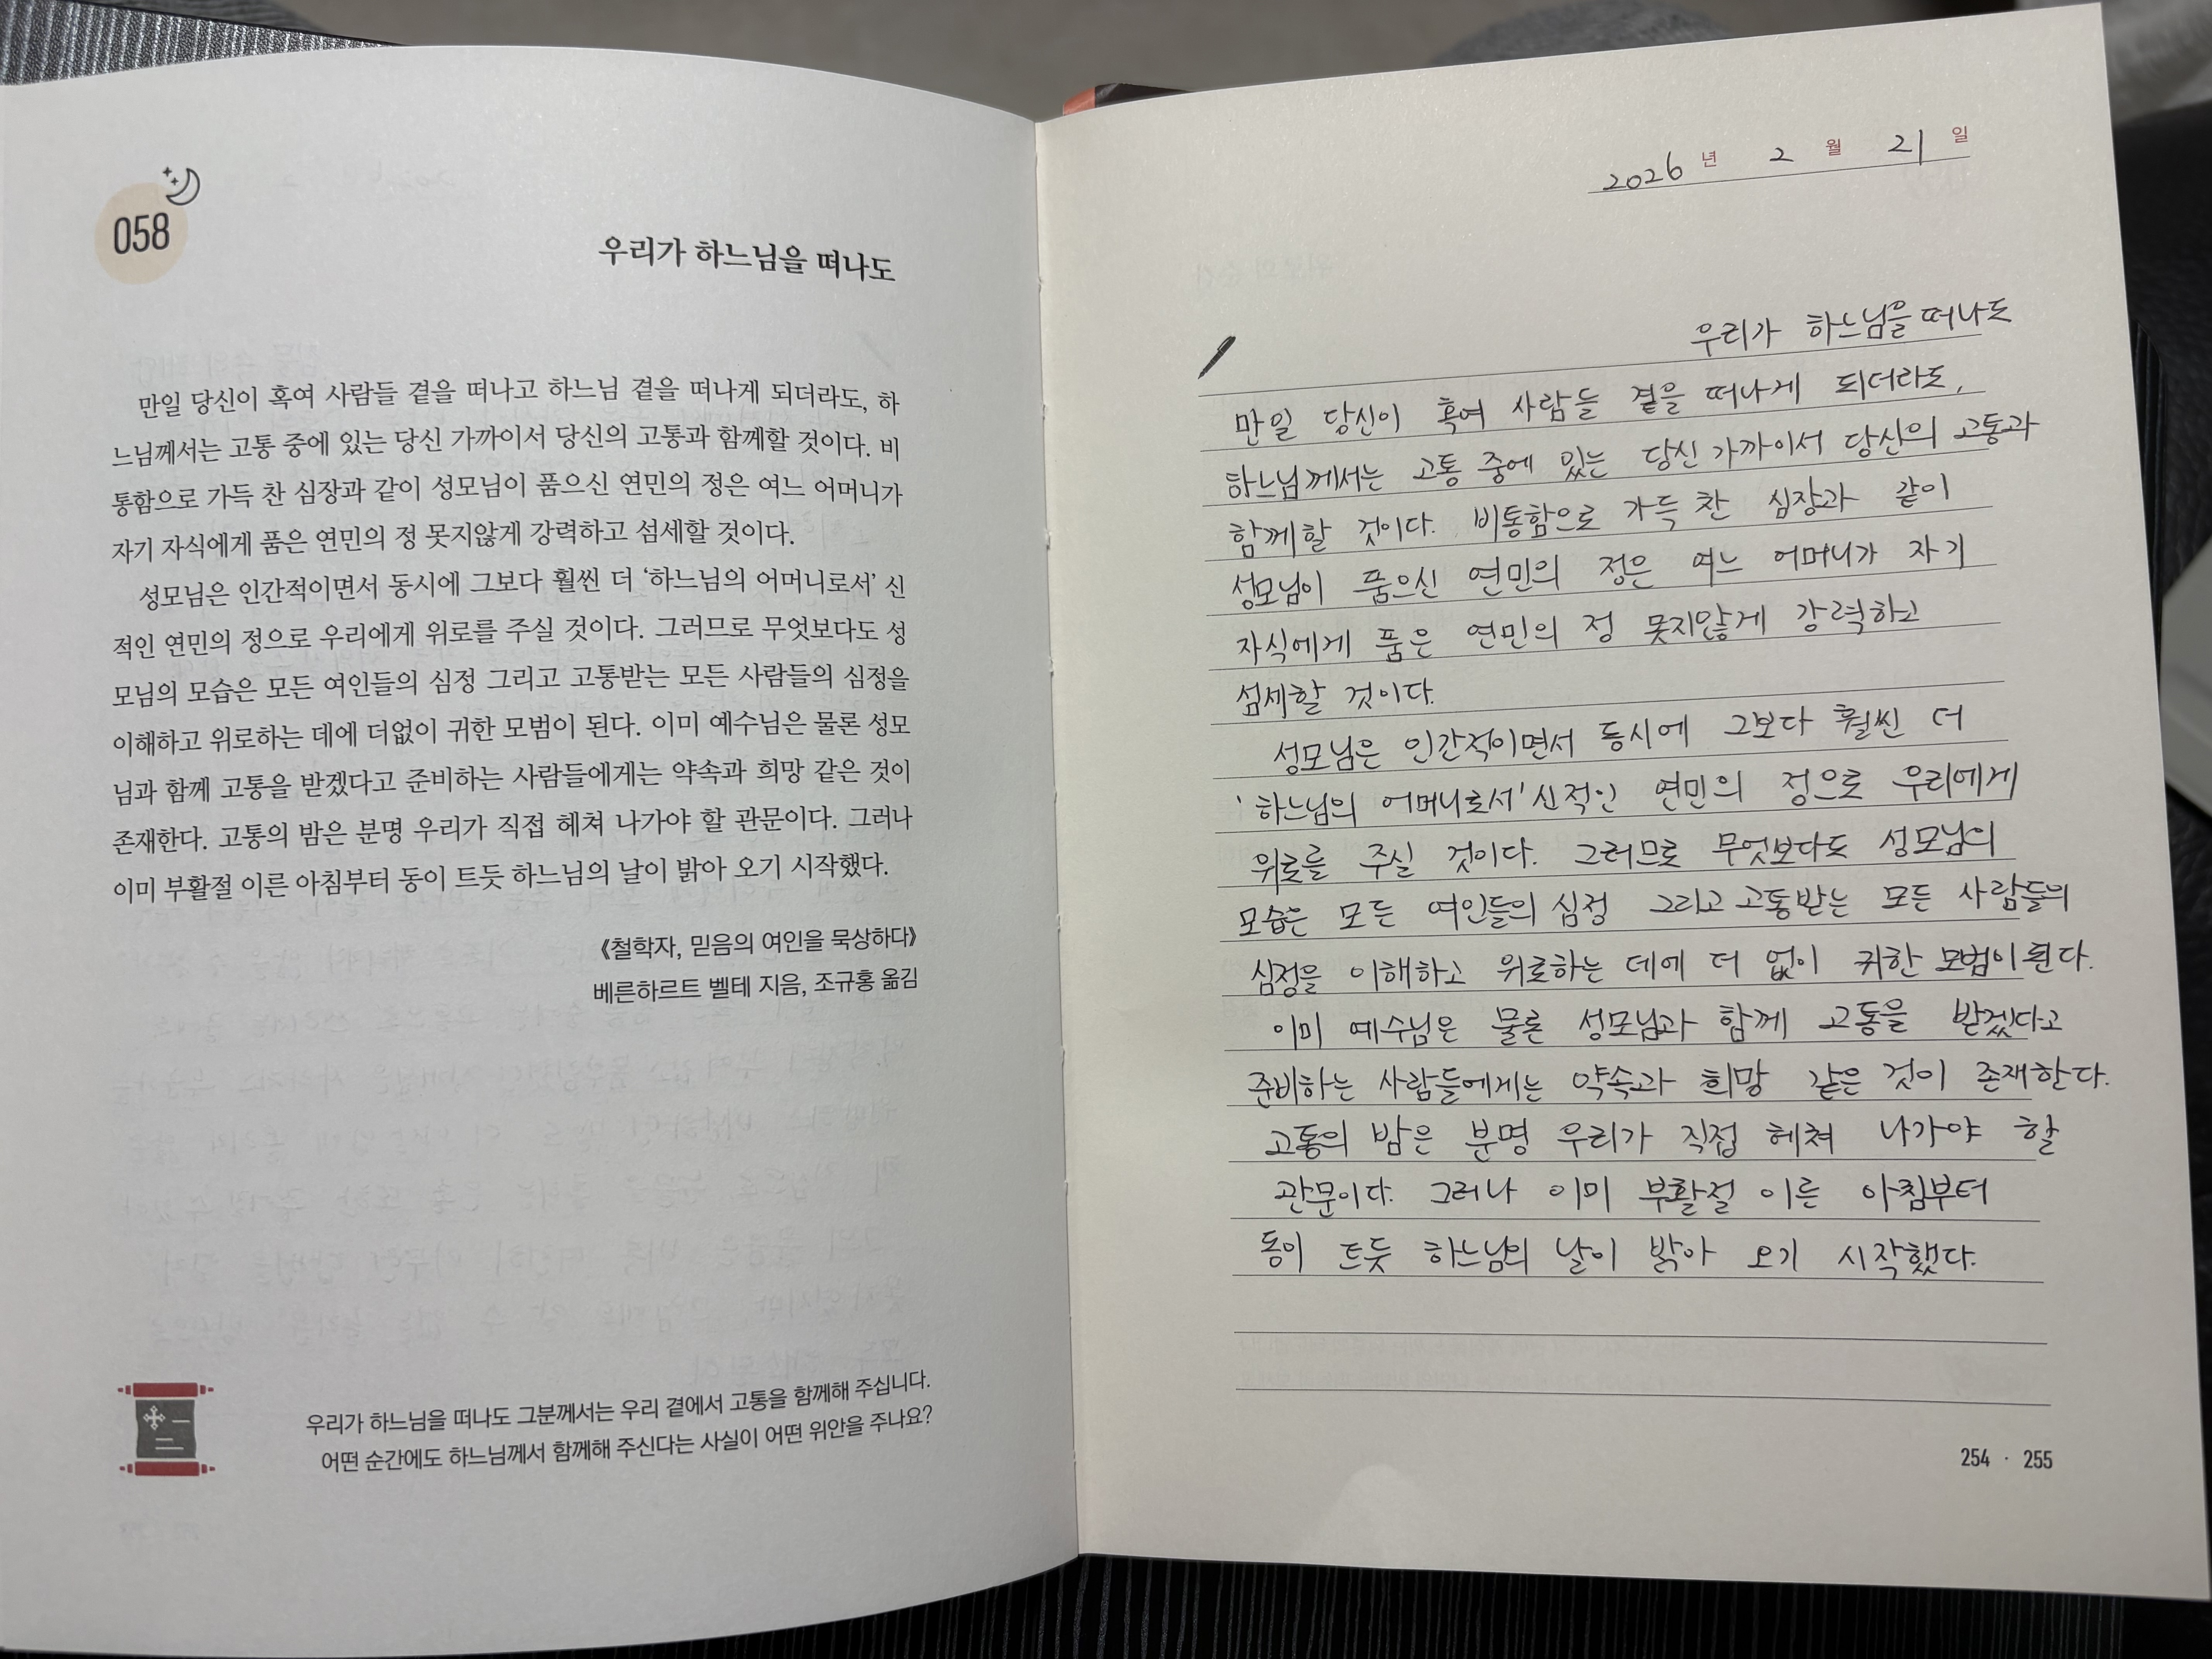 058
우리가 하느님을 떠나도
만일 당신이 혹여 사람들 곁을 떠나고 하느님 곁을 떠나게 되더라도, 하
느님께서는 고통 중에 있는 당신 가까이서 당신의 고통과 함께할 것이다. 비
통함으로 가득 찬 심장과 같이 성모님이 품으신 연민의 정은 여느 어머니가
자기 자식에게 품은 연민의 정 못지않게 강력하고 섬세할 것이다.
성모님은 인간적이면서 동시에 그보다 훨씬 더 ‘하느님의 어머니로서’ 신
적인 연민의 정으로 우리에게 위로를 주실 것이다. 그러므로 무엇보다도 성
모님의 모습은 모든 여인들의 심정 그리고 고통받는 모든 사람들의 심정을
이해하고 위로하는 데에 더없이 귀한 모범이 된다. 이미 예수님은 물론 성모
님과 함께 고통을 받겠다고 준비하는 사람들에게는 약속과 희망 같은 것이
존재한다. 고통의 밤은 분명 우리가 직접 헤쳐 나가야 할 관문이다. 그러나
이미 부활절 이른 아침부터 동이 트듯 하느님의 날이 밝아 오기 시작했다.
《철학자, 믿음의 여인을 묵상하다》
베른하르트 벨테 지음, 조규홍 옮김
우리가 하느님을 떠나도 그분께서는 우리 곁에서 고통을 함께해 주십니다.
어떤 순간에도 하느님께서 함께해 주신다는 사실이 어떤 위안을 주나요?
2026 년 2 월 21 일
우리가 하느님을 떠나도
만일 당신이 혹여 사람들 곁을 떠나게 되더라도,
하느님께서는 고통 중에 있는 당신 가까이서 당신의 고통과
함께할 것이다. 비통함으로 가득 찬 심장과 같이
성모님이 품으신 연민의 정은 여느 어머니가 자기
자식에게 품은 연민의 정 못지않게 강력하고
섬세할 것이다.
성모님은 인간적이면서 동시에 그보다 훨씬 더
'하느님의 어머니로서' 신적인 연민의 정으로 우리에게
위로를 주실 것이다. 그러므로 무엇보다도 성모님의
모습은 모든 여인들의 심정 그리고 고통받는 모든 사람들의
심정을 이해하고 위로하는 데에 더 없이 귀한 모범이 된다.
이미 예수님은 물론 성모님과 함께 고통을 받겠다고
준비하는 사람들에게는 약속과 희망 같은 것이 존재한다.
고통의 밤은 분명 우리가 직접 헤쳐 나가야 할
관문이다. 그러나 이미 부활절 이른 아침부터
동이 트듯 하느님의 날이 밝아 오기 시작했다.
254 · 255